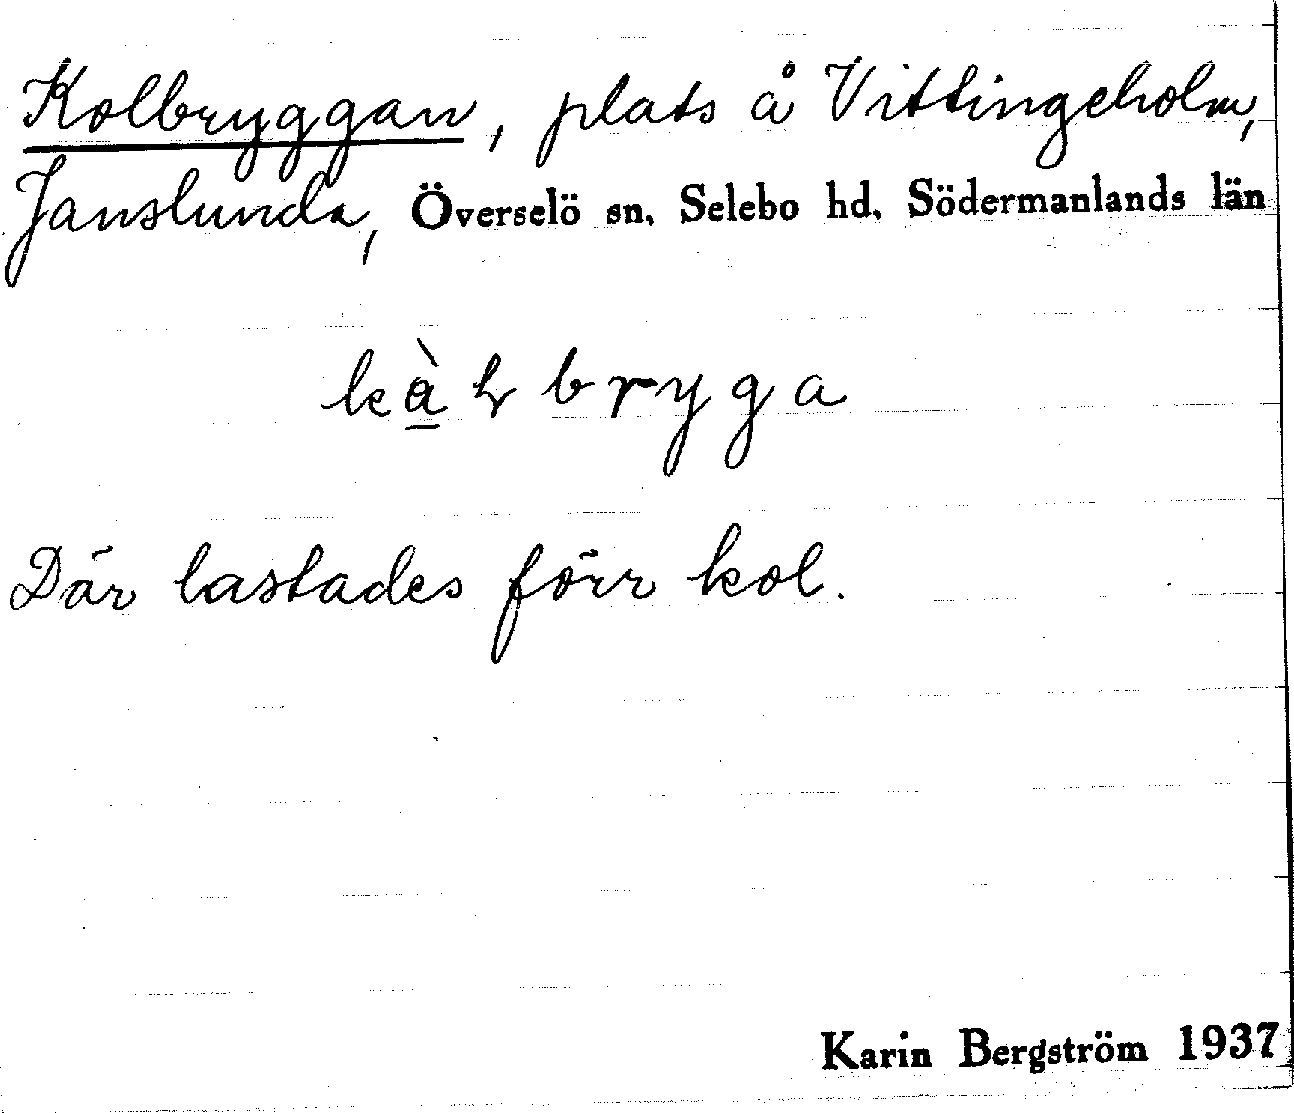 Kolbryggan, plats å Vittingeholm,
Janslunda, Överselö sn, Selebo hd, Södermanlands län
Där lastades förr kol.
Karin Bergström 1937